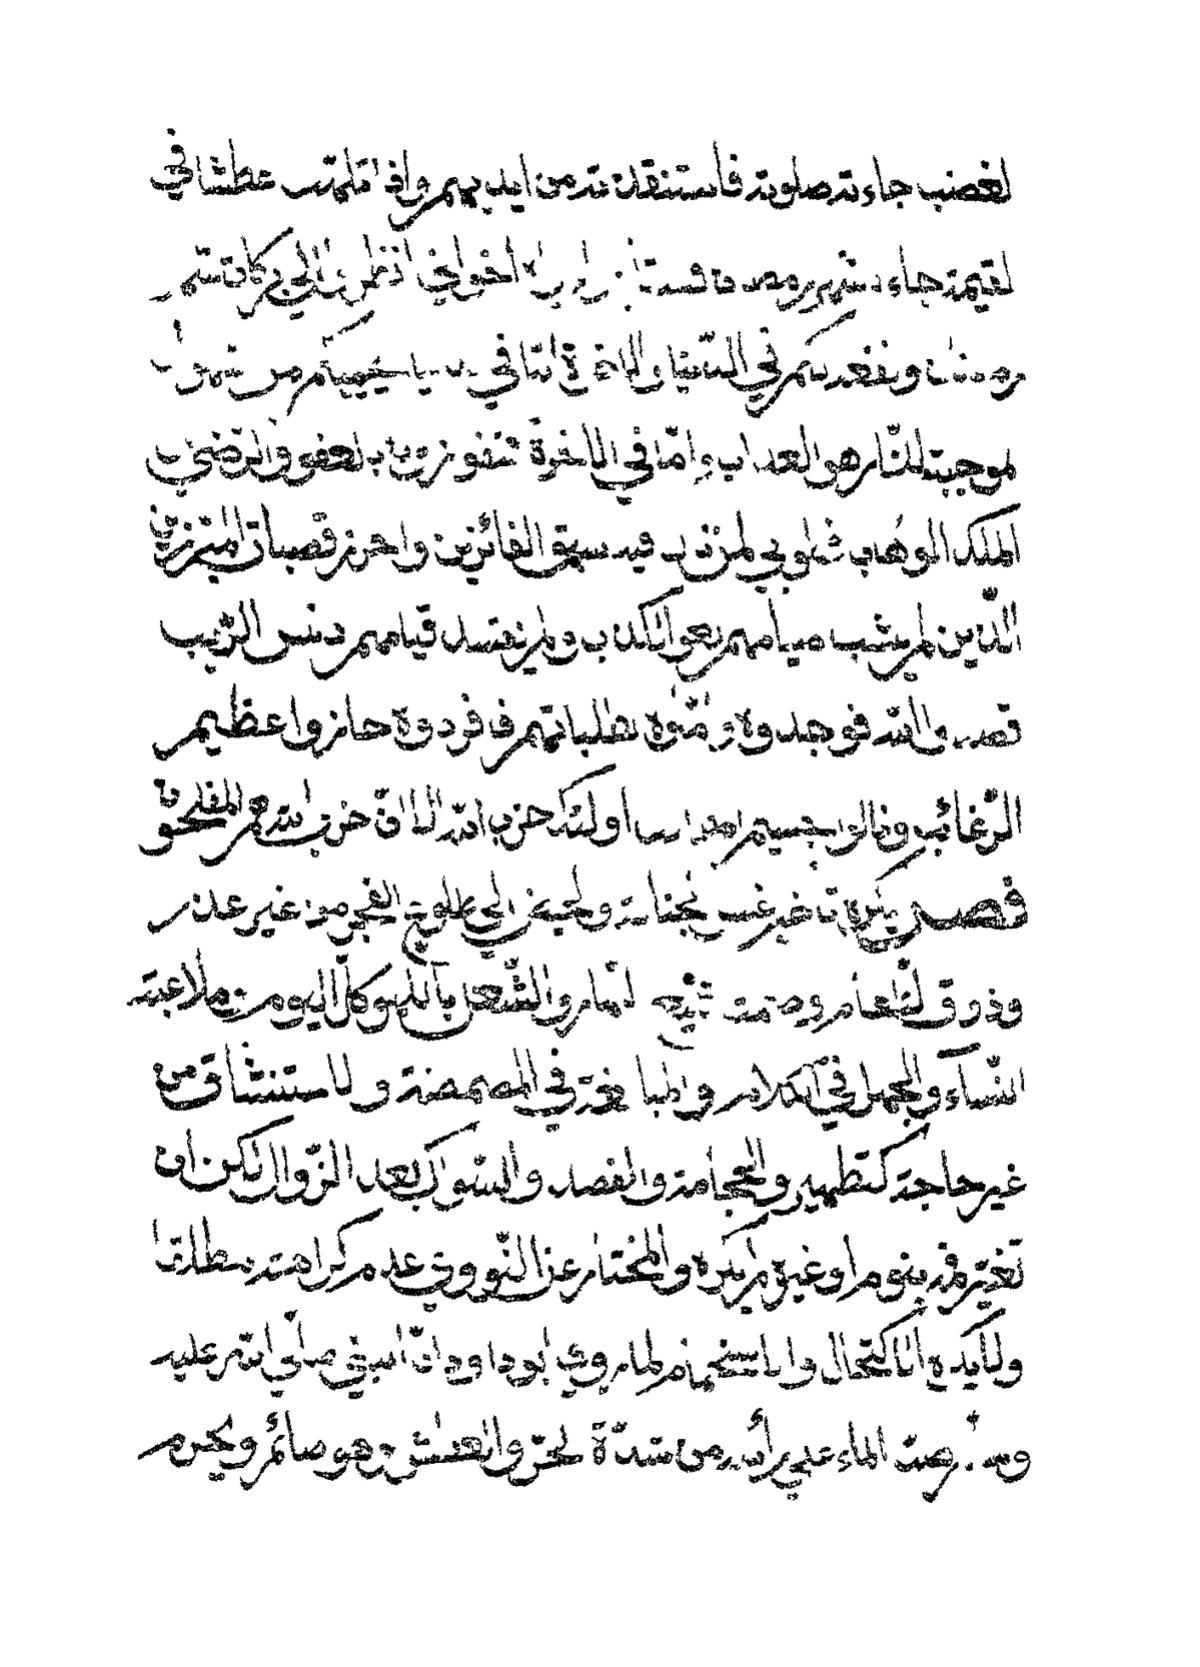 الغضب جاءته صلوته فاستنقذته من ايديهم واذا قلبت عطشا في
القيمة جاء شهر رمضان فسقا اخواني انظروا الي بركات شهر
رمضان ونفعه لكم في الدنيا والاخرة اما في الدنيا يحميكم من شهوات
موجبة للنار هو العذاب واما في الاخرة تفوزون بالعفو والرضي
الملك الوهاب طوبي لمن فيه سبق الفائزين واحرز قصبات المبرزين
الذين لم يشب صيامهم لغو الكذب ولم يفسد قيامهم دنس الريب
قصدوا الله فوجدوه وامّوه بطلباتهم فافردوه حازوا عظيم
الرغائب ونالوا جسيم اولئك حزب الله الا ان حزب الله هم المفلحون
فصل يكره تاخير غسل الجنابة والحيض الي طلوع الفجر من غير عذر
وذوق الطعام وصمت الي الليل كل اليوم من ملاعبة
النساء والجهل في الكلام والمبالغة في المضمضة والاستنشاق من
غير حاجة كتطهير والحجامة والفصد والسواك بعد الزوال لكن ان
تغير فمه بنوم او غيره لم يكره والمختار عند النووي عدم كراهته مطلقا
ولا يكره الاكتحال والاستحمام لما روي ابو داود ان النبي صلي الله عليه
وسلم صبّ الماء علي رأسه من شدّة الحرّ والعطش وهو صائم ويحرم